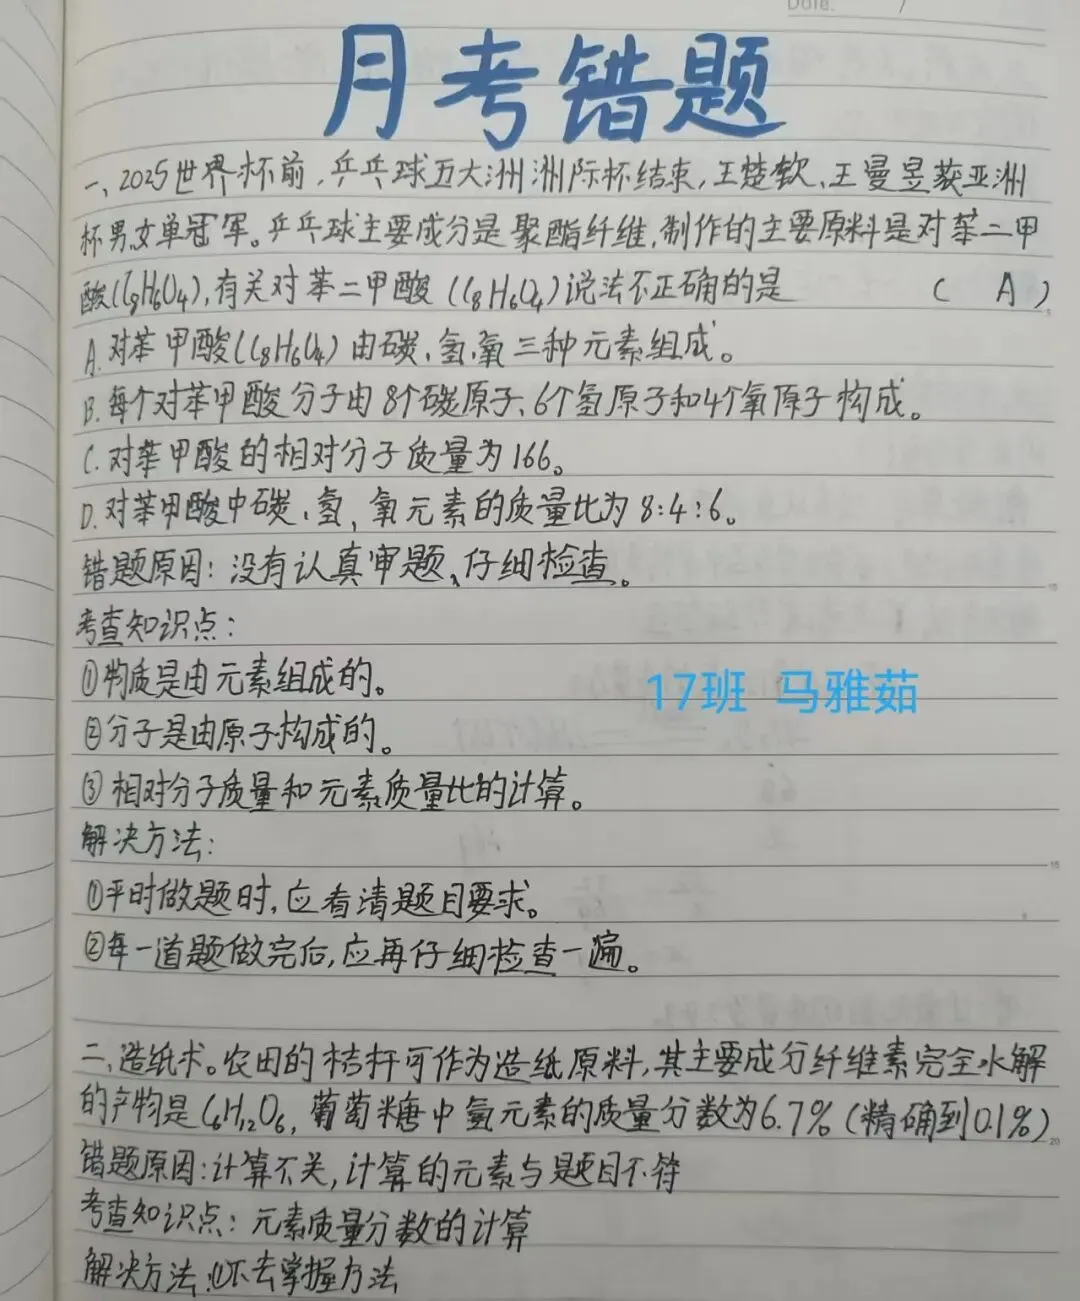 Date. /
月考错题
一、2025世界杯前，乒乓球五大洲洲际杯结束，王楚钦、王曼昱获亚洲
杯男、女单冠军。乒乓球主要成分是聚酯纤维，制作的主要原料是对苯二甲
酸(C8H6O4)，有关对苯二甲酸(C8H6O4)说法不正确的是 ( A )
A.对苯甲酸(C8H6O4)由碳、氢、氧三种元素组成。
B.每个对苯甲酸分子由8个碳原子、6个氢原子和4个氧原子构成。
C.对苯甲酸的相对分子质量为166。
D.对苯甲酸中碳、氢、氧元素的质量比为8:4:6。
错题原因：没有认真审题、仔细检查。
考查知识点：
①物质是由元素组成的。
17班 马雅茹
②分子是由原子构成的。
③相对分子质量和元素质量比的计算。
解决方法：
①平时做题时，应看清题目要求。
②每一道题做完后，应再仔细检查一遍。
二、造纸术。农田的桔杆可作为造纸原料，其主要成分纤维素完全水解
的产物是C6H12O6，葡萄糖中氢元素的质量分数为6.7%(精确到0.1%)
错题原因：计算不关，计算的元素与题目不符
考查知识点：元素质量分数的计算
解决方法：①不去掌握方法